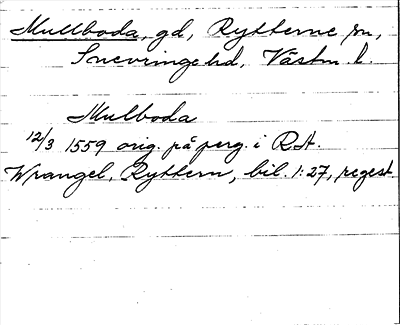 Mullboda, gd, Rytterne sn,
Snevringe hd, Västm. l.
Mulboda
12/3 1559 orig. på perg. i R.A.
Wrangel, Ryttern, bil. 1:27, regest